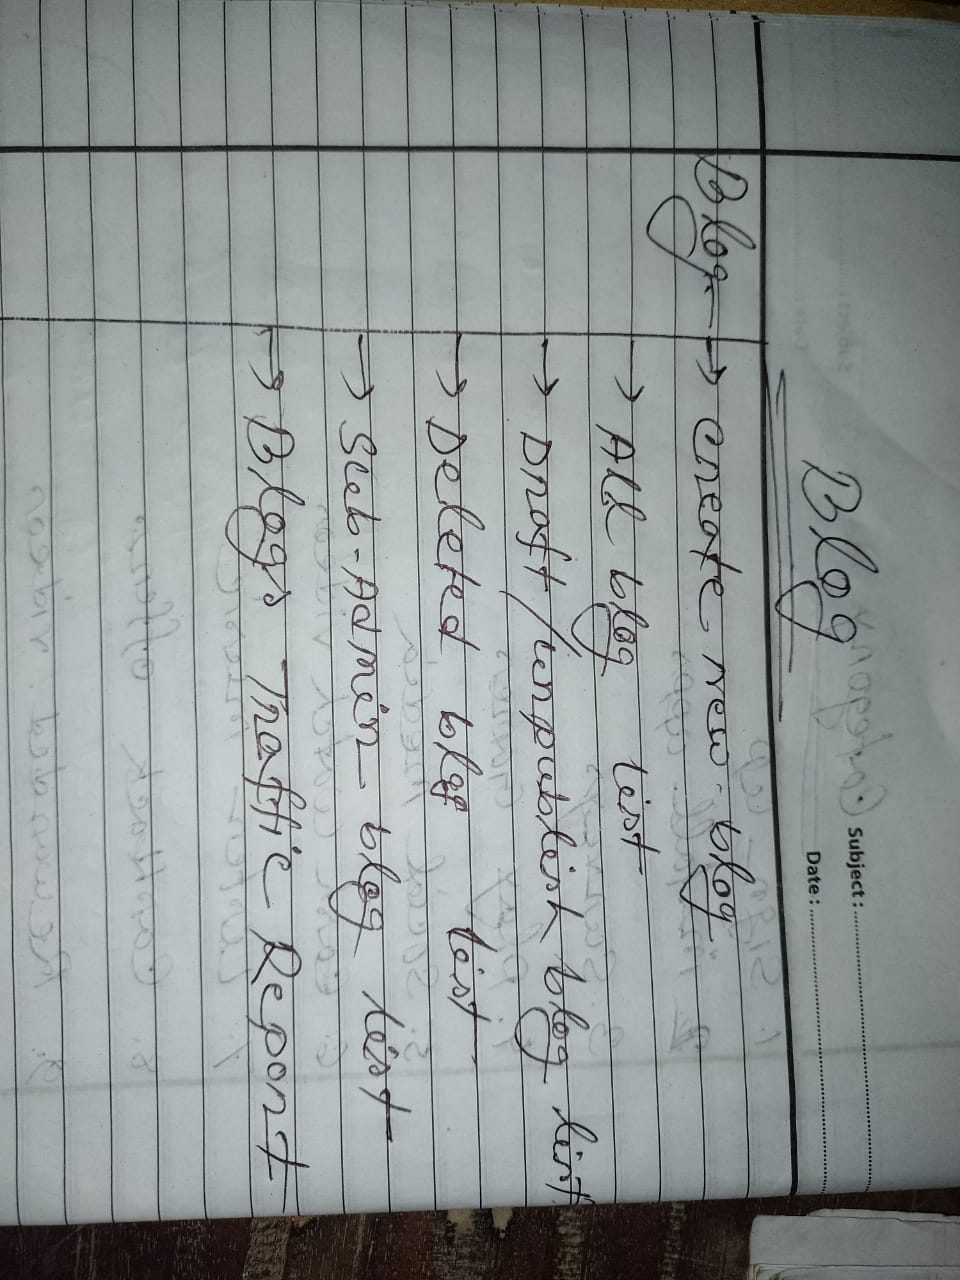 Blog
Subject :
Date :
Blog → create new blog
→ All blog list
→ Draft/unpublish blog list
→ Deleted blog list
→ Sub-Admin blog list
→ Blogs Traffic Report